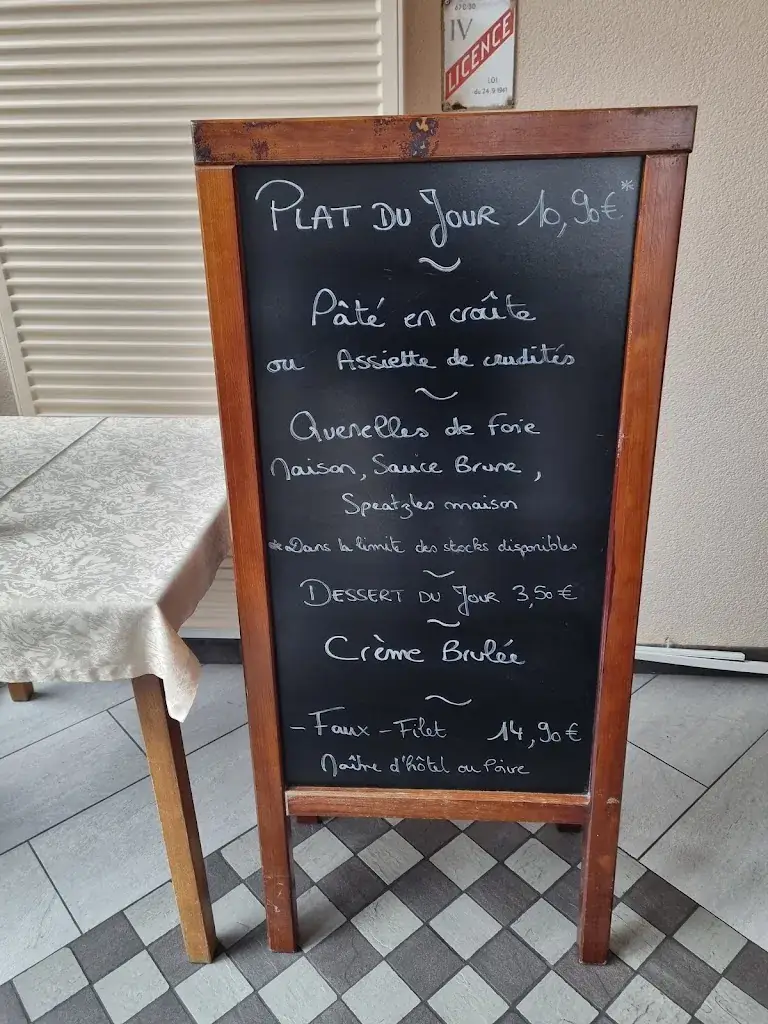 67030
IV
LICENCE
LOI
du 24.9.1941
PLAT DU JOUR 10,90€*
~
Pâté en croûte
ou Assiette de crudités
~
Quenelles de foie
Maison, Sauce Brune,
Speatzles maison
*Dans la limite des stocks disponibles
~
DESSERT DU JOUR 3,50€
~
Crème Brulée
~
- Faux-Filet 14,90€
Maître d'hôtel ou Poivre